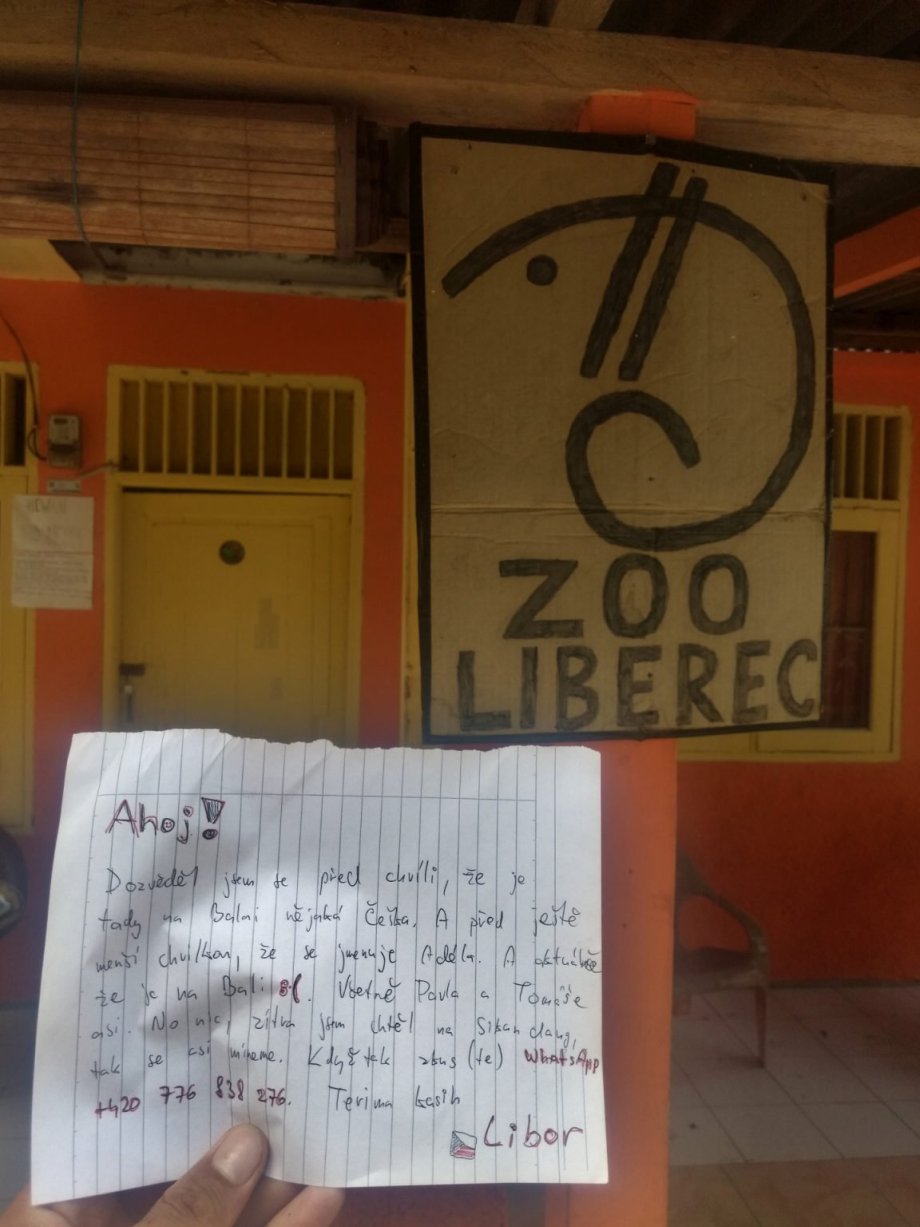 ZOO
LIBEREC
Ahoj!
Dozvěděl jsem se před chvílí, že je
tady na Balai nějaká Češka. A před ještě
menší chvilkou, že se jmenuje Adéla. A aktuálně
že je na Bali :(. Včetně Pavla a Tomáše
asi. No nic, zítra jsem chtěl na Sikundang,
tak se asi mineme. Když tak zkus (te) WhatsApp
+420 776 838 276. Terima kasih
Libor